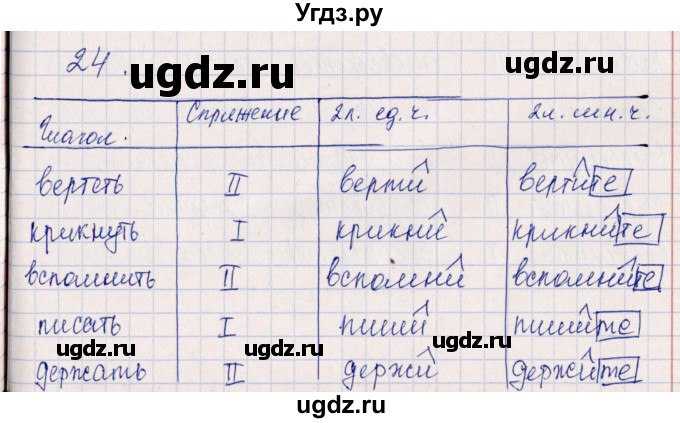 Угдз.ру
24.
ugdz.ru
ugdz.ru
Глагол. Спряжение 2л. ед. ч. 2л. мн. ч.
вертеть II верти вертите
крикнуть I крикни крикните
вспомнить II вспомни вспомните
писать I пиши пишите
держать II держи держите
ugdz.ru
ugdz.ru
ugdz.ru